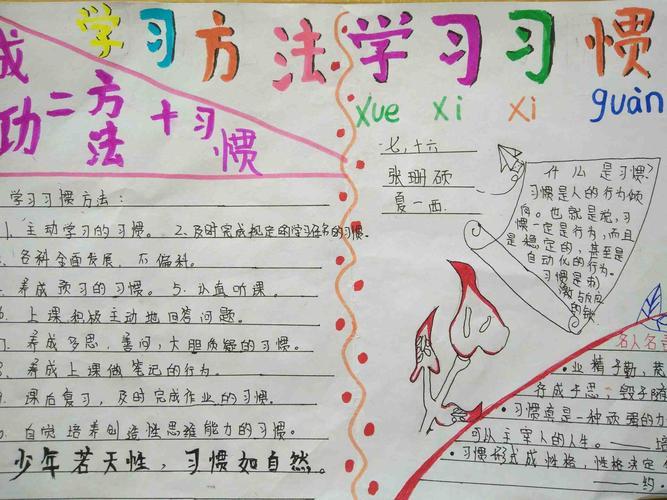 学习方法
成功=方法+习惯
学习习惯方法：
1. 主动学习的习惯。 2. 及时完成规定的学习任务的习惯。
各科全面发展，不偏科。
养成预习的习惯。 5. 认真听课。
上课积极主动地回答问题。
养成多思，善问，大胆质疑的习惯。
养成上课做笔记的行为。
课后复习，及时完成作业的习惯。
自觉培养创造性思维能力的习惯。
少年若天性，习惯如自然。
学习习惯
xue xi xi guàn
七，十六
张珊硕
夏一西
什么是习惯？
习惯是人的行为倾
向。也就是说，习
惯一定是行为，而且
是稳定的，甚至是
自动化的行为。
习惯是刺
激与反应
的锁
名人名言
· 业精于勤，荒
行成于思，毁于随
· 习惯真是一种顽强的力
可以主宰人的人生。——培
· 习惯形成性格，性格决定
——约